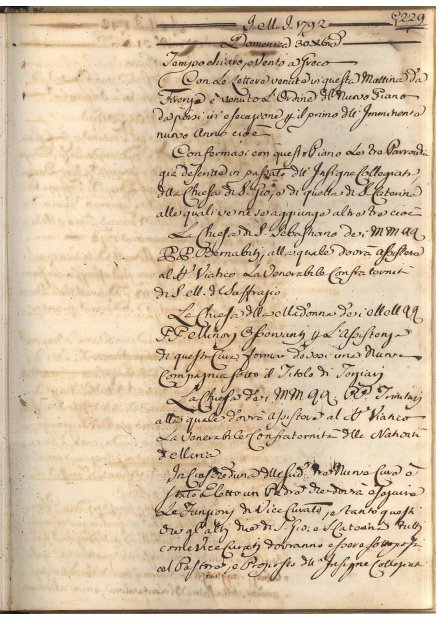 J. M. J. 1792
229
Domenica 30 Xbre
Tempo chiaro, e Vento a Greco
Con le Lettere venute in questa Mattina da
Firenze è venuto l'Ordine del Nuovo Piano
da porsi in esecuzione p il primo dell' Imminente
nuovo Anno cioè
Conformasi con questo Piano le tre Parrocchie
già descritte in passato dell' Insigne Collegiata
della Chiesa di S. Gio, e di quella di S. Caterina
alle quali se ne aggiunge altre tre cioè
La Chiesa di S. Sebastiano dei M M RR
P.P. Bernabiti, alla quale dovrà assistere
al SS Viatico La Venerabile Confraternita
di S. M. del Suffragio
La Chiesa della Madonna dei M M RR
P.P. Minori Osservanti, e p l'Assistenza
di questa Cura formar devesi una Nuova
Compagnia sotto il Titolo di
La Chiesa dei M M RR PP Trinitarj
alla quale dovrà assistere al SS Viatico
La Venerabile Confraternita della Natività
di Maria
In Ciascheduna delle sud. tre Nuove Cure è
stato Eletto un Padre che dovrà eseguire
Le Funzioni di Vice Curato, e tanto questi
che gl'altri due di S. Gio, e S. Caterina tutti
come Vice Curati dovranno essere sottoposti
al Pastore, e Proposto dell' Insigne Collegiata